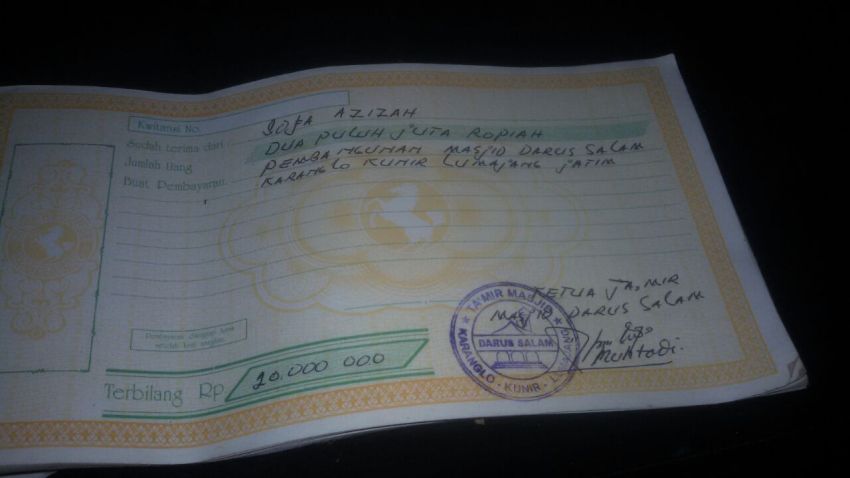 Kwitansi No.
Sudah terima dari AZIZAH
Jumlah Uang DUA PULUH JUTA ROPIAH
Buat Pembayaran PEMBANGUNAN MASJID DARUS SALAM
KARANGLO KUNIR LUMAJANG JATIM
KETUA TA,MIR
MASJID DARUS SALAM
TA'MIR MASJID
DARUS SALAM
KARANGLO - KUNIR -
Terbilang Rp 20.000 000